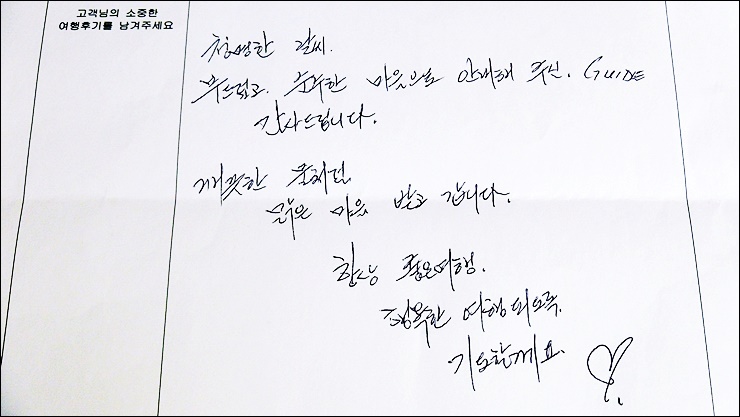 고객님의 소중한
여행후기를 남겨주세요
청명한 날씨.
부드럽고. 순수한 마음으로 안내해 주신. GUIDE
감사드립니다.
깨끗한 물처럼
맑은 마음 받고 갑니다.
항상 좋은여행.
행복한 여행되도록.
기도할게요.